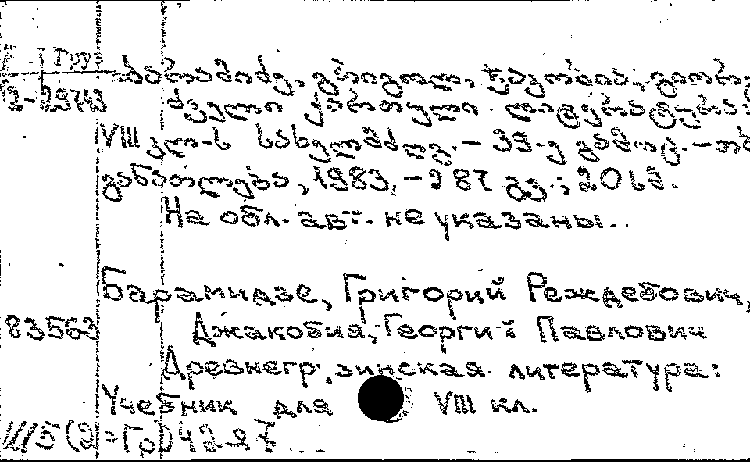 ბარამიძე, გრიგოლ, ჯაკობია, გიორგ
2-29713 ძველი ქართული ლიტერატურა:
VIII კლ-ს სახელმძღვ. – 39-ე გამოც. – თბ
განათლება, 1983. – 287 გვ.; 20 სმ.
На обл. авт. не указаны.
Барамидзе, Григорий Реждебович,
83563 Джакобиа, Георгий Павлович
Древнегрузинская литература:
Учебник для VIII кл.
Ш5(2=Гр)4я27